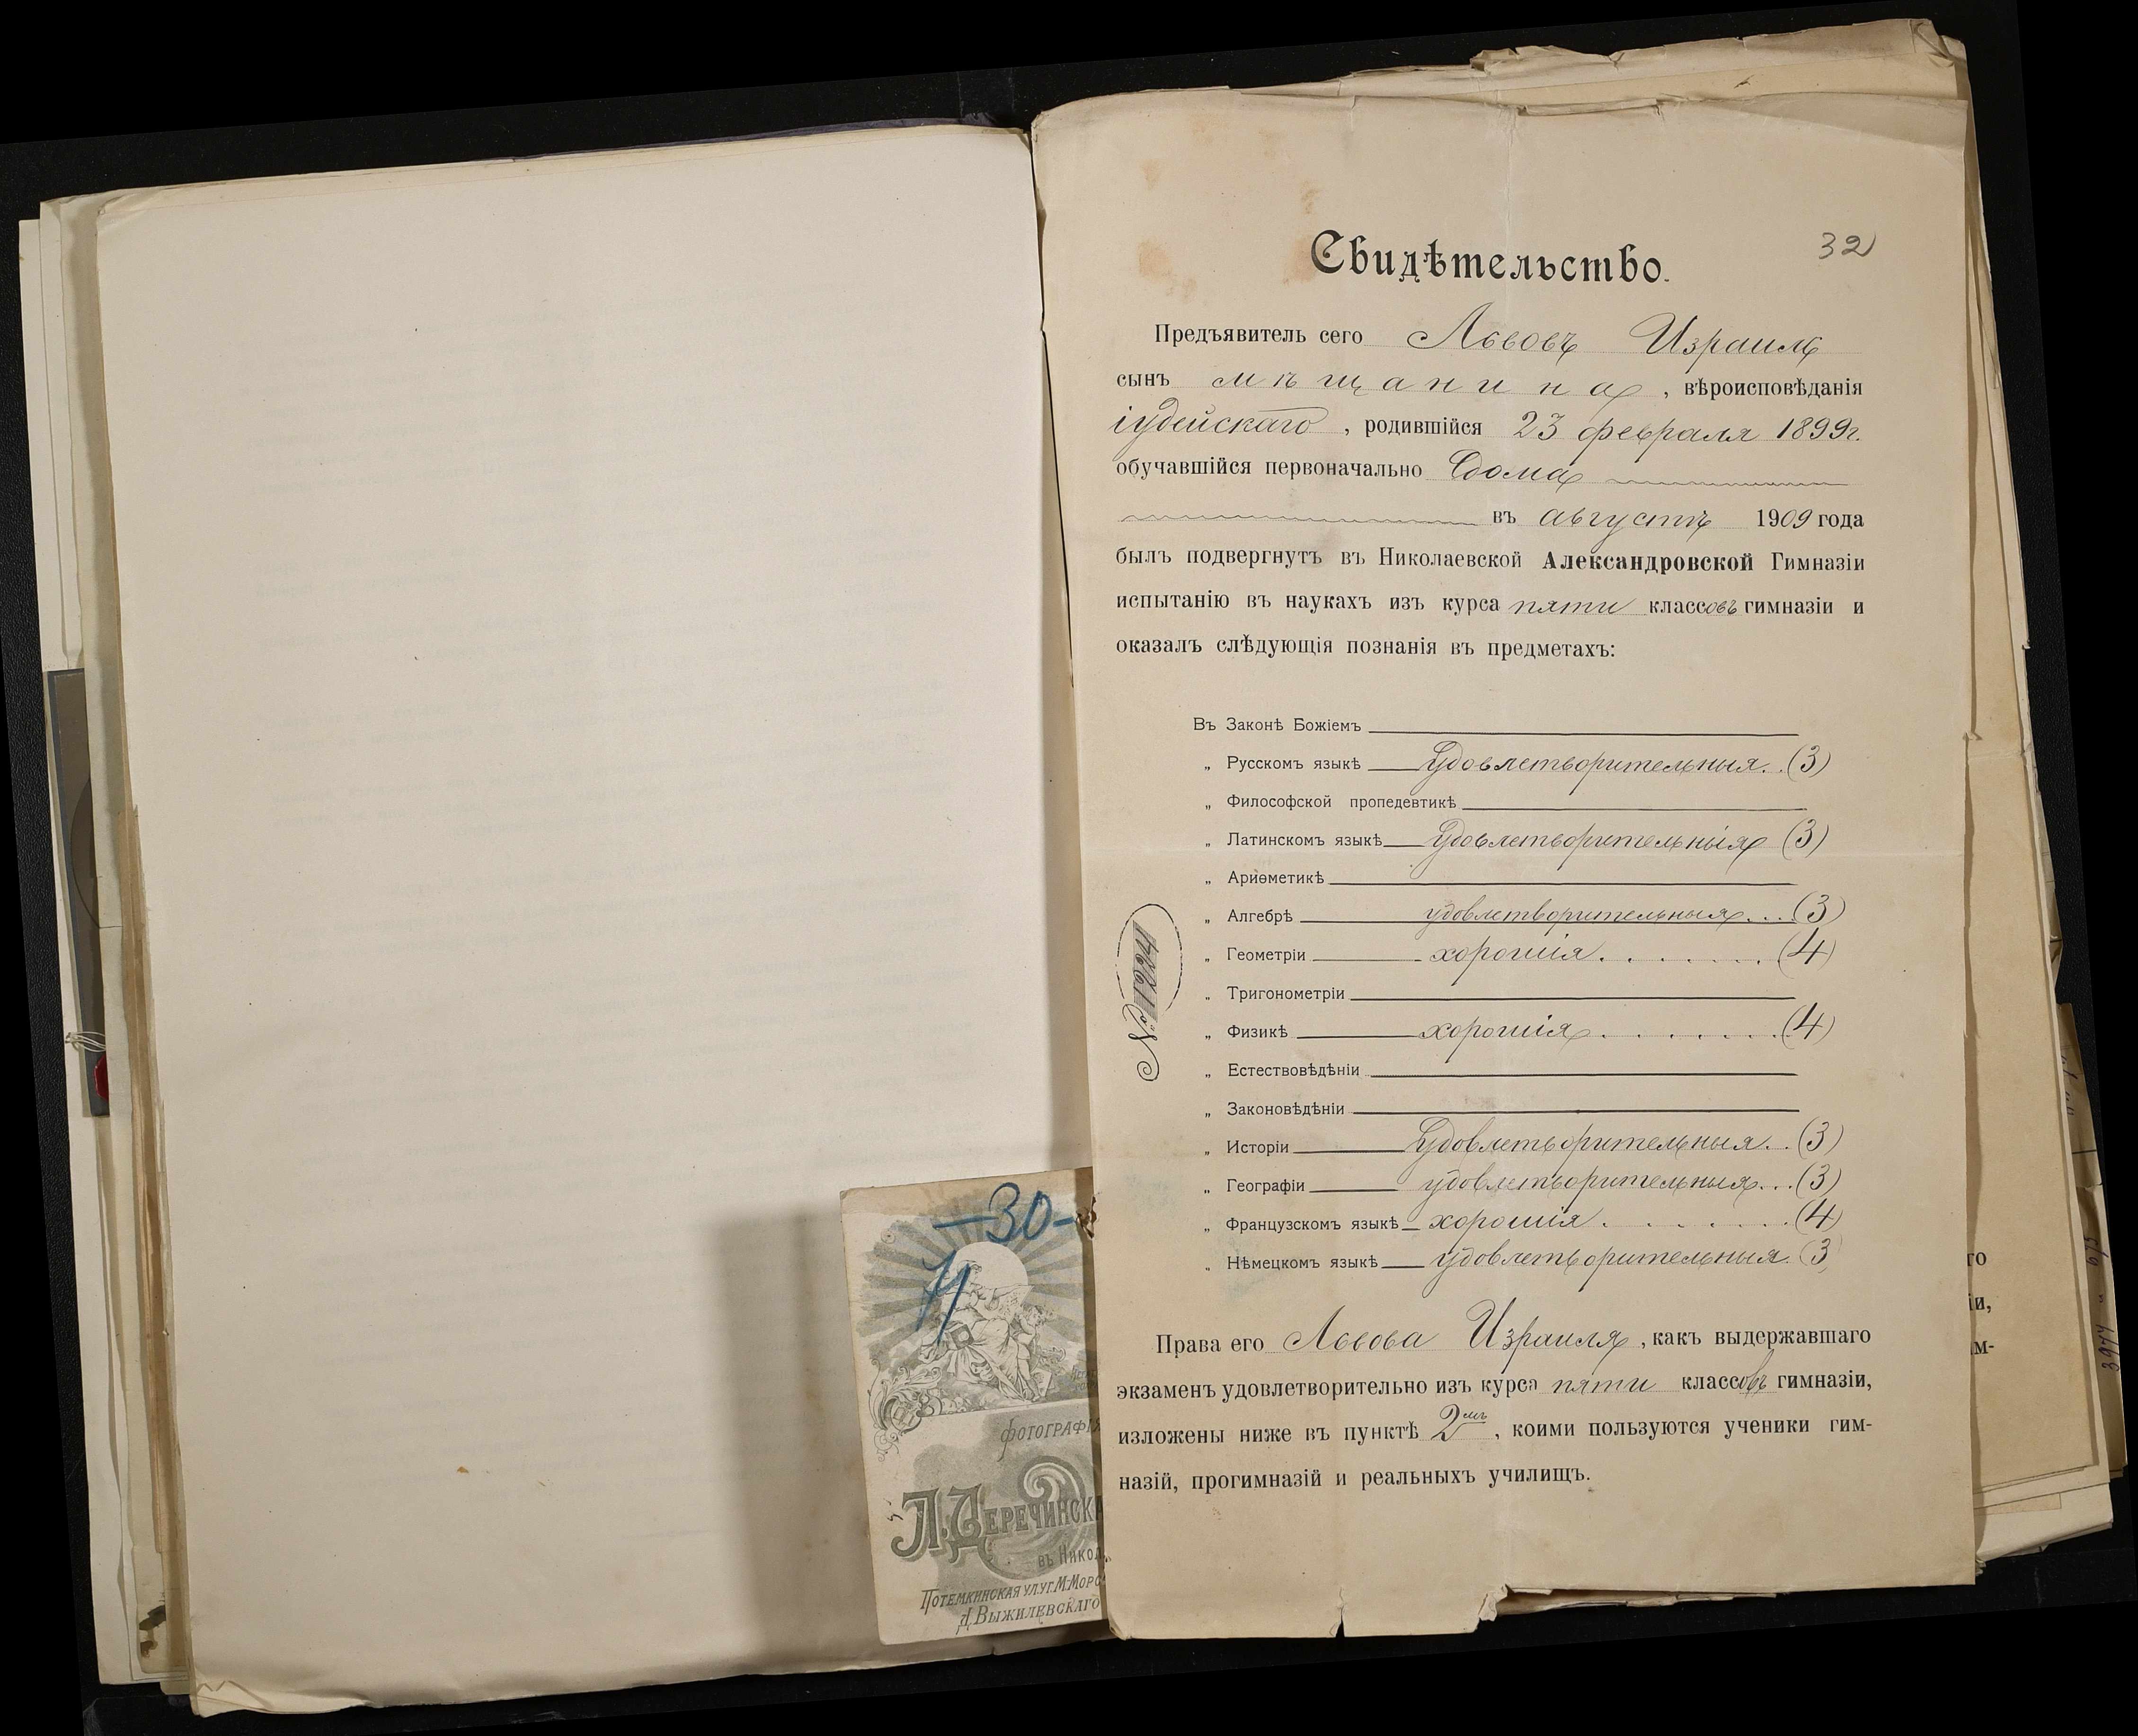 32
Свидѣтельство.
Предъявитель сего Львовъ Израиль
сынъ мѣщанина, вѣроисповѣданія
іудейскаго, родившійся 23 февраля 1899г.
обучавшійся первоначально дома
въ августѣ 1909 года
былъ подвергнутъ въ Николаевской Александровской Гимназіи
испытанію въ наукахъ изъ курса пяти классовъ гимназіи и
оказалъ слѣдующія познанія въ предметахъ:
Въ Законѣ Божіемъ
„ Русскомъ языкѣ удовлетворительныя. . (3)
„ Философской пропедевтикѣ
„ Латинскомъ языкѣ удовлетворительныя (3)
„ Ариѳметикѣ
„ Алгебрѣ удовлетворительныя. . . . (3)
„ Геометріи хорошія. . . . . . . (4)
„ Тригонометріи
„ Физикѣ хорошія. . . . . . . . (4)
„ Естествовѣдѣніи
„ Законовѣдѣніи
„ Исторіи удовлетворительныя. . . (3)
„ Географіи удовлетворительныя. . . (3)
„ Французскомъ языкѣ хорошія. . . . . . . (4)
„ Нѣмецкомъ языкѣ удовлетворительныя. (3)
Права его Львова Израиля, какъ выдержавшаго
экзаменъ удовлетворительно изъ курса пяти классовъ гимназіи,
изложены ниже въ пунктѣ 2мъ, коими пользуются ученики гим-
назій, прогимназій и реальныхъ училищъ.
№
-30-
фотографія
Л. Деречинска
въ Никол
Потемкинская ул. уг. М-Морс
Д. Выжилевскаго
го
іи,
им-